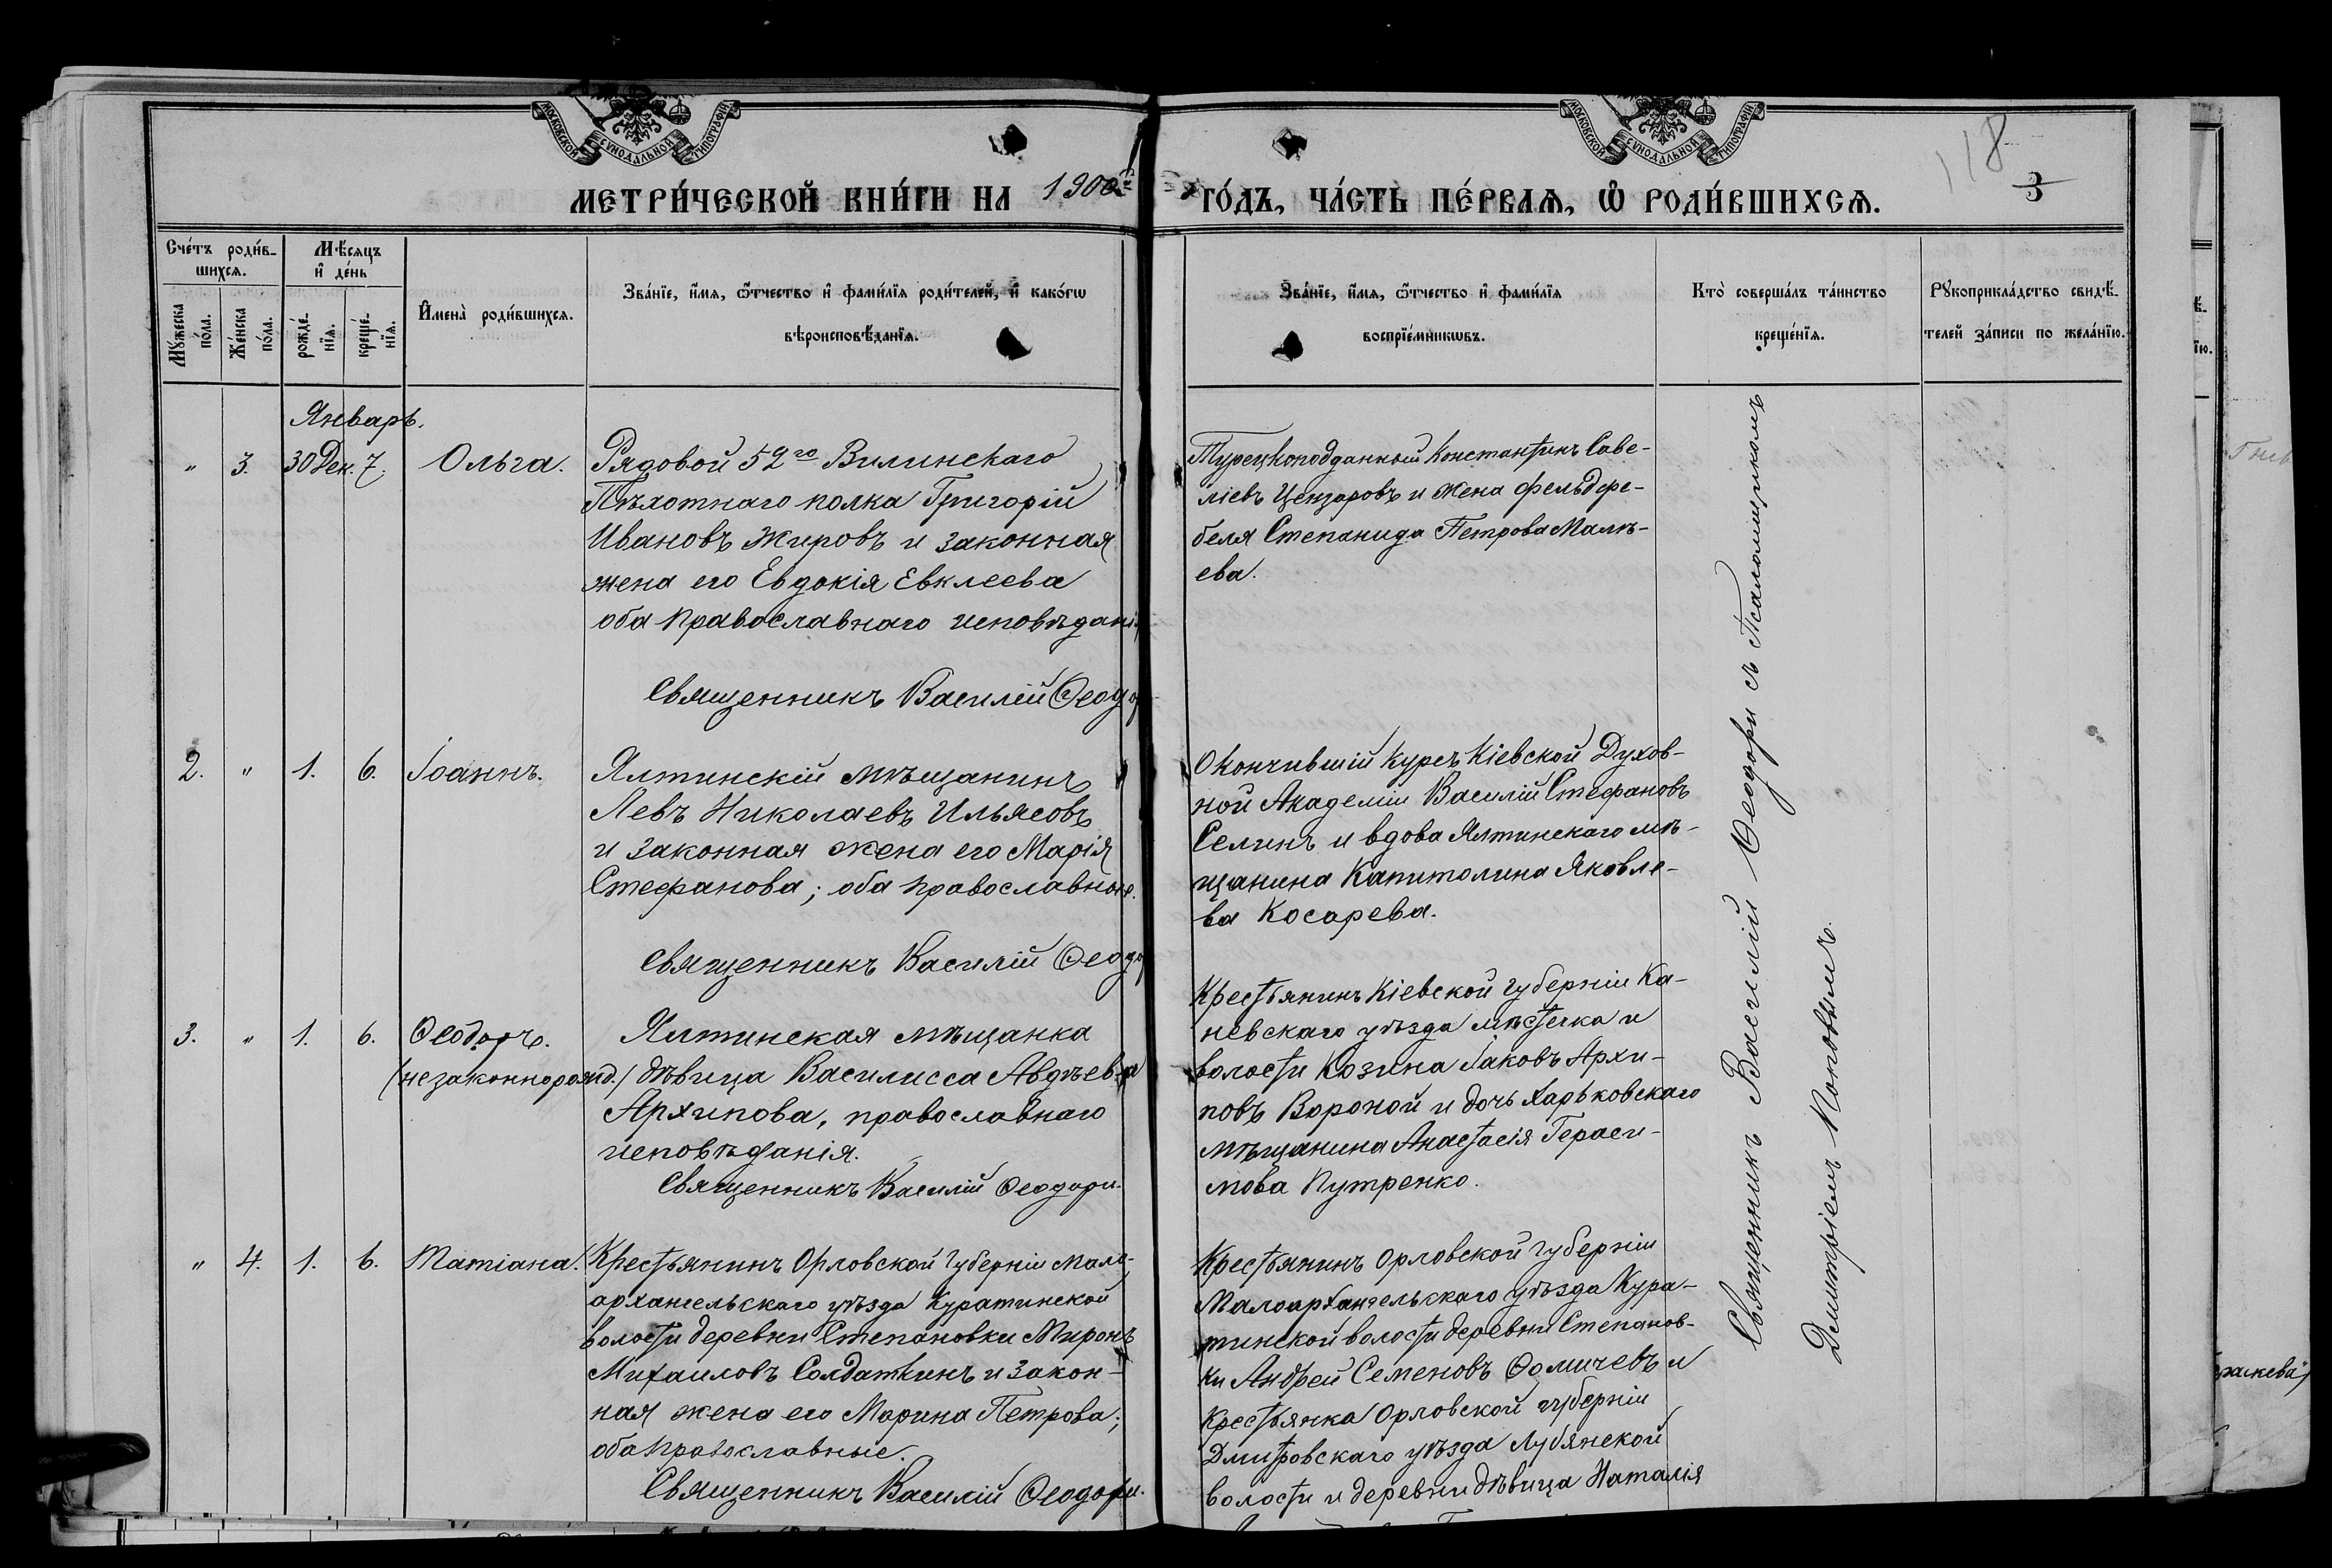 МОСКОВСКОЙ СУНОДАЛЬНОЙ ТИПОГРАФІИ
МОСКОВСКОЙ СУНОДАЛЬНОЙ ТИПОГРАФІИ
118
3
МЕТРИ́ЧЕСКОЙ КНИ́ГИ НА 1900й ГО́ДЪ, ЧА́СТЬ ПЕ́РВАѦ, Ѡ҆ РОДИ́ВШИХСѦ.
Сче́тъ роди́в-
шихсѧ.
Мѣ́сяцъ
и҆ де́нь
Мꙋ́жеска
по́ла.
Же́нска
по́ла.
рожде́-
нїѧ.
креще́-
нїѧ.
И҆мена̀ роди́вшихсѧ.
Зва́нїе, и҆́мѧ, ѻ҆́тчество и҆ фами́лїѧ роди́телей, и҆ како́гѡ
вѣроисповѣ́данїѧ.
Зва́нїе, и҆́мѧ, ѻ҆́тчество и҆ фами́лїѧ
воспрїе́мникѡвъ.
Кто̀ соверша́лъ та́инство
креще́нїѧ.
Рꙋкоприкла́дство свидѣ́-
телей за́писи по жела́нїю.
Январь.
" 3. 30 Дек. 7. Ольга.
Рядовой 52го Вилинскаго
Пѣхотнаго полка Григорій
Ивановъ Жировъ и законная
жена его Евдокія Евклеева
оба православнаго исповѣданія
Священникъ Василій Ѳеодори
Турецкоподданный Константинъ Саве-
ліевъ Цензаровъ и жена фельдфе-
беля Степанида Петрова Малѣ-
ева.
2. " 1. 6. Іоаннъ.
Ялтинскій мѣщанинъ
Левъ Николаевъ Ильясовъ
и законная жена его Марія
Стефанова; оба православные.
Священникъ Василій Ѳеодо
Окончившій курсъ Кіевской Духов-
ной Академіи Василій Стефановъ
Селинъ и вдова Ялтинскаго мѣ-
щанина Капитолина Яковле-
ва Косарева.
3. " 1. 6. Ѳеодоръ.
(незаконнорожд.)
Ялтинская мѣщанка
дѣвица Василисса Авдѣева
Архипова, православнаго
исповѣданія.
Священникъ Василій Ѳеодори.
Крестьянинъ Кіевской губерніи Ка-
невскаго уѣзда мѣстечка и
волости Козина Іаковъ Архи-
повъ Вороной и дочь Харьковскаго
мѣщанина Анастасія Гераси-
мова Путренко.
" 4. 1. 6. Татіана.
Крестьянинъ Орловской Губерніи Мало-
архангельскаго уѣзда Куратинской
волости деревни Степановки Миронъ
Михаиловъ Солдаткинъ и закон-
ная жена его Марина Петрова;
оба православные.
Священникъ Василій Ѳеодори.
Крестьянинъ Орловской губерніи
Малоархангельскаго уѣзда Кура-
тинской волости деревни Степанов-
ки Андрей Семеновъ Ѳомичевъ и
крестьянка Орловской губерніи
Дмитровскаго уѣзда Лубянской
волости и деревни дѣвица Наталія
Священникъ Василій Ѳеодори съ Псаломщикомъ
Димитріемъ Поповымъ.